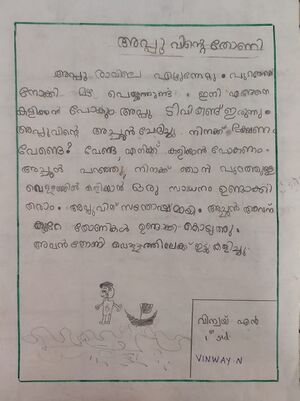 അപ്പുവിന്റെ തോണി
അപ്പു രാവിലെ എഴുന്നേറ്റു. പുറത്തേക്ക്
നോക്കി മഴ പെയ്യുന്നുണ്ട്. ഇനി എങ്ങനെ
കളിക്കാൻ പോകും അപ്പു ടിവി കണ്ട് ഇരുന്നു.
അപ്പുവിന്റെ അച്ഛൻ ചോദിച്ചു നിനക്ക് ഭക്ഷണം
വേണ്ടെ? വേണ്ട, എനിക്ക് കളിക്കാൻ പോകണം.
അച്ഛൻ പറഞ്ഞു, നിനക്ക് ഞാൻ പുറത്തുള്ള
വെള്ളത്തിൽ കളിക്കാൻ ഒരു സാധനം ഉണ്ടാക്കി
തരാം. അപ്പുവിന് സന്തോഷമായി. അച്ഛൻ അവന്
കുറേ തോണികൾ ഉണ്ടാക്കി കൊടുത്തു.
അവൻ തോണി വെള്ളത്തിലേക്ക് ഇട്ടു കളിച്ചു.
വിന്വയ് എൻ
VINWAY N